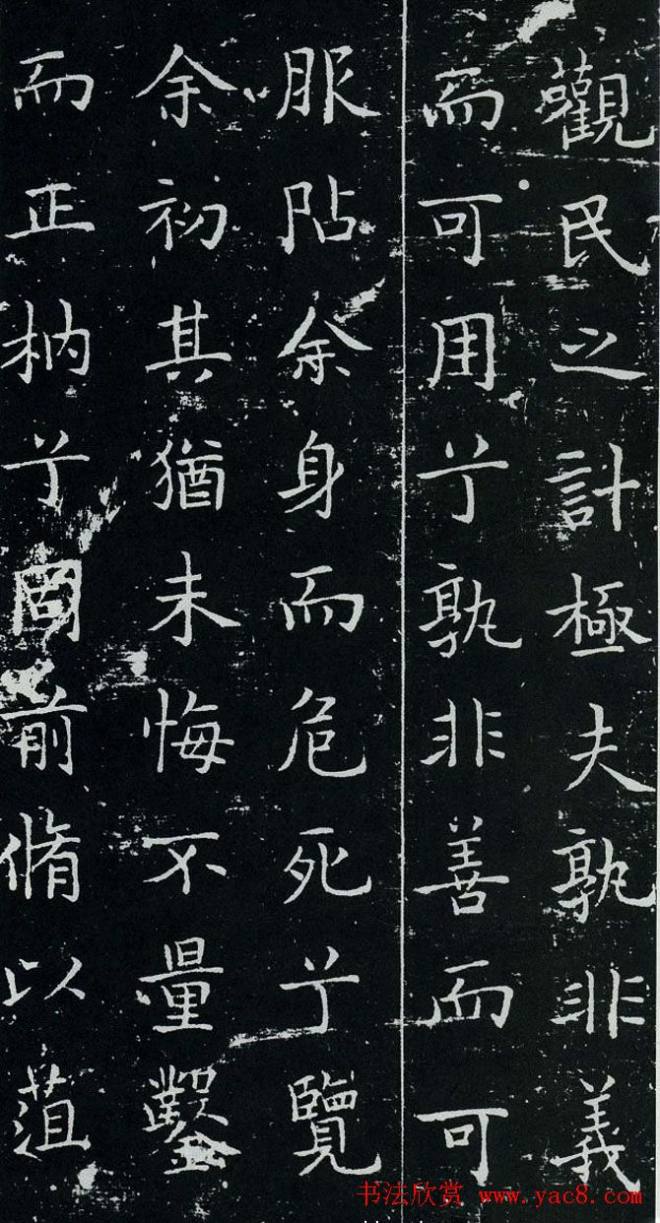 觀民之計極夫孰非義
而可用兮孰非善而可
服阽余身而危死兮覽
余初其猶未悔不量鑿
而正枘兮固前脩以菹
书法欣赏 www.yac8.com